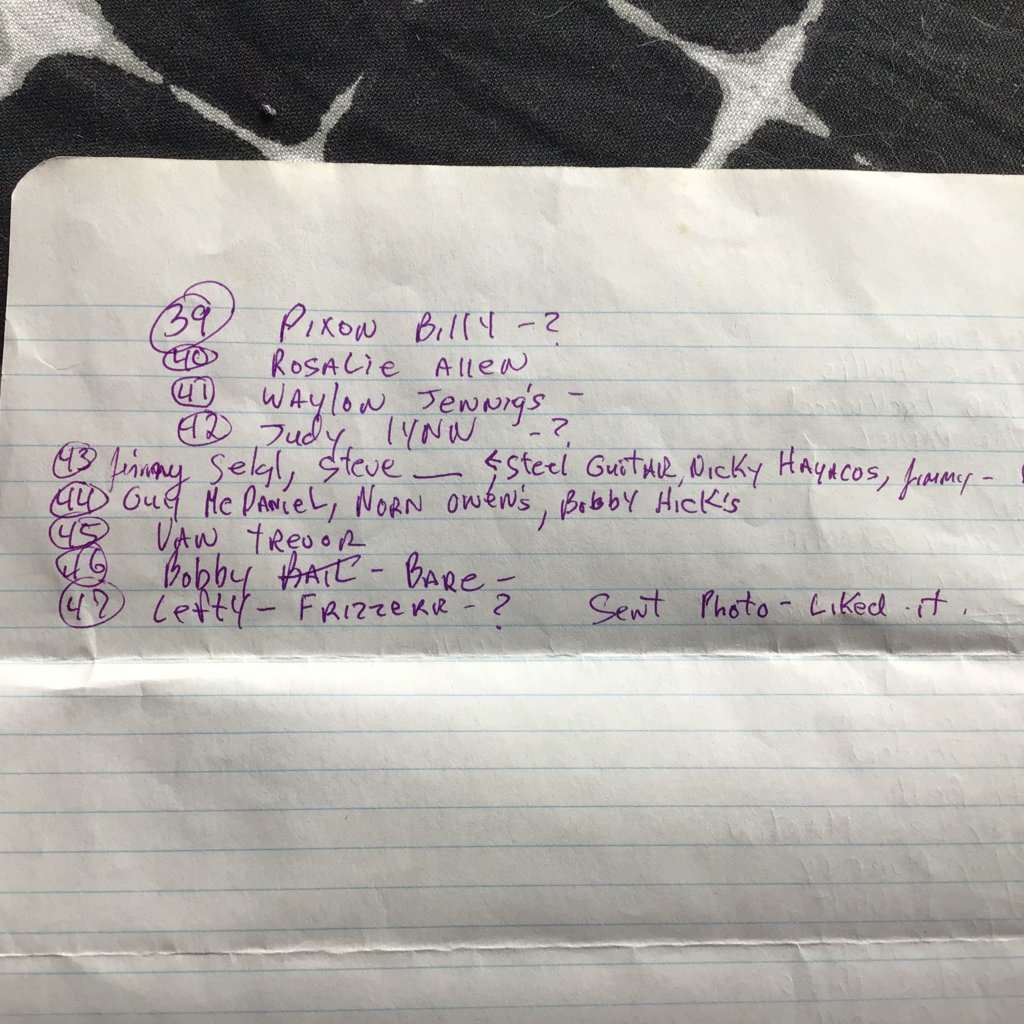 39 Pixon Billy - ?
40 Rosalie Allen
41 Waylon Jennig's -
42 Judy Lynn - ?
43 Jimmy Selgl, Steve __ & Steel Guitar, Nicky Hayacos, Jimmy -
44 Guy McDaniel, Norn Owen's, Bobby Hick's
45 Van Trevor
46 Bobby - Bare -
47 Lefty - Frizzerr - ? Sent Photo - Liked it.